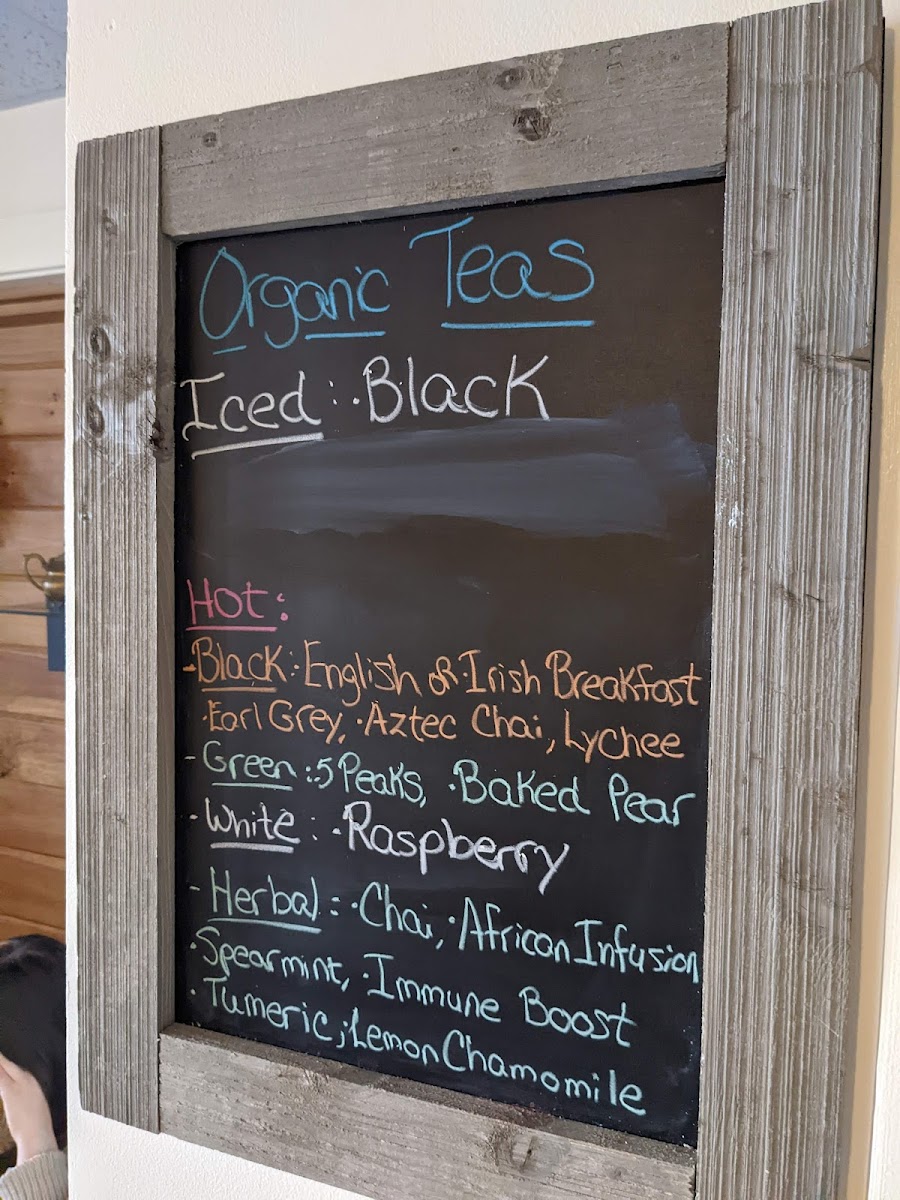 Organic Teas
Iced: ·Black
Hot:
-Black: ·English or ·Irish Breakfast
·Earl Grey, ·Aztec Chai, Lychee
-Green: ·5 Peaks, ·Baked Pear
-White: ·Raspberry
-Herbal: ·Chai, ·African Infusion
·Spearmint, ·Immune Boost
·Tumeric, ·Lemon Chamomile